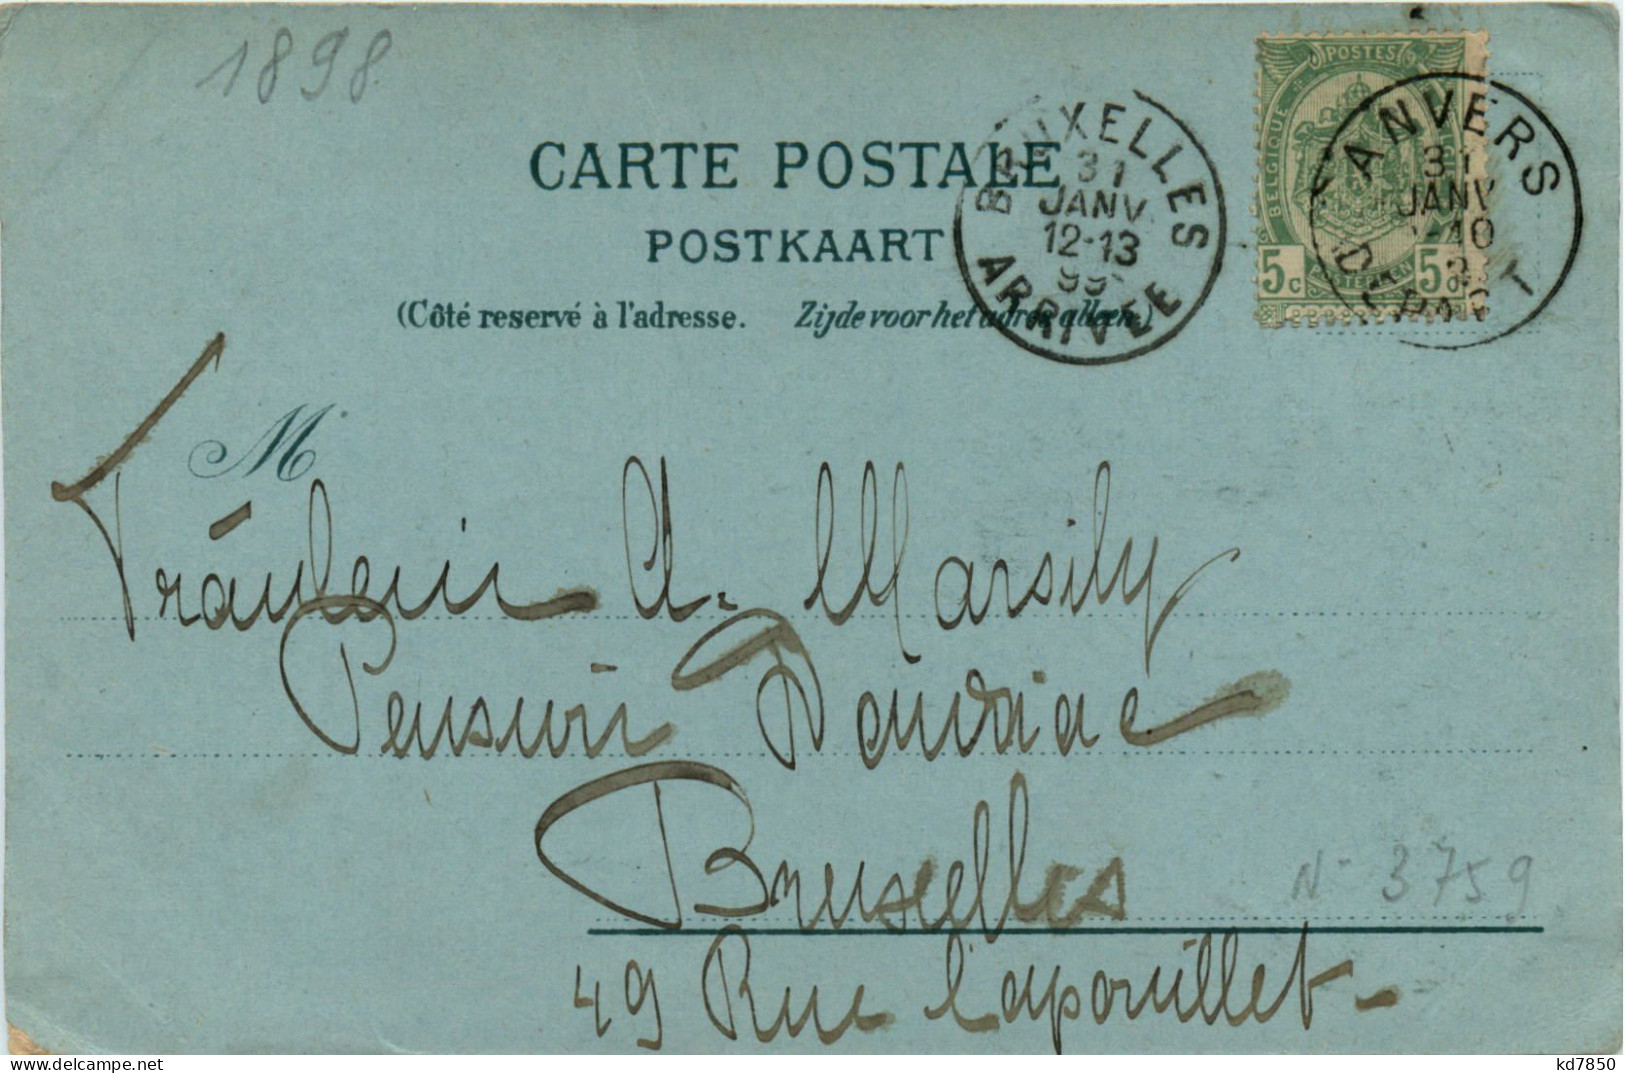 1898
CARTE POSTALE
POSTKAART
(Côté reservé à l'adresse. Zijde voor het adres alleen.)
BRUXELLES
31
JANV
12-13
99
ARRIVÉE
POSTES
BELGIQUE
5c 5c
ANVERS
31
JANV
10
DÉPART
M
Fräulein A. Marsily
Pension Dandriac
Bruxelles
N- 3759
49 Rue Capouillet
kd7850